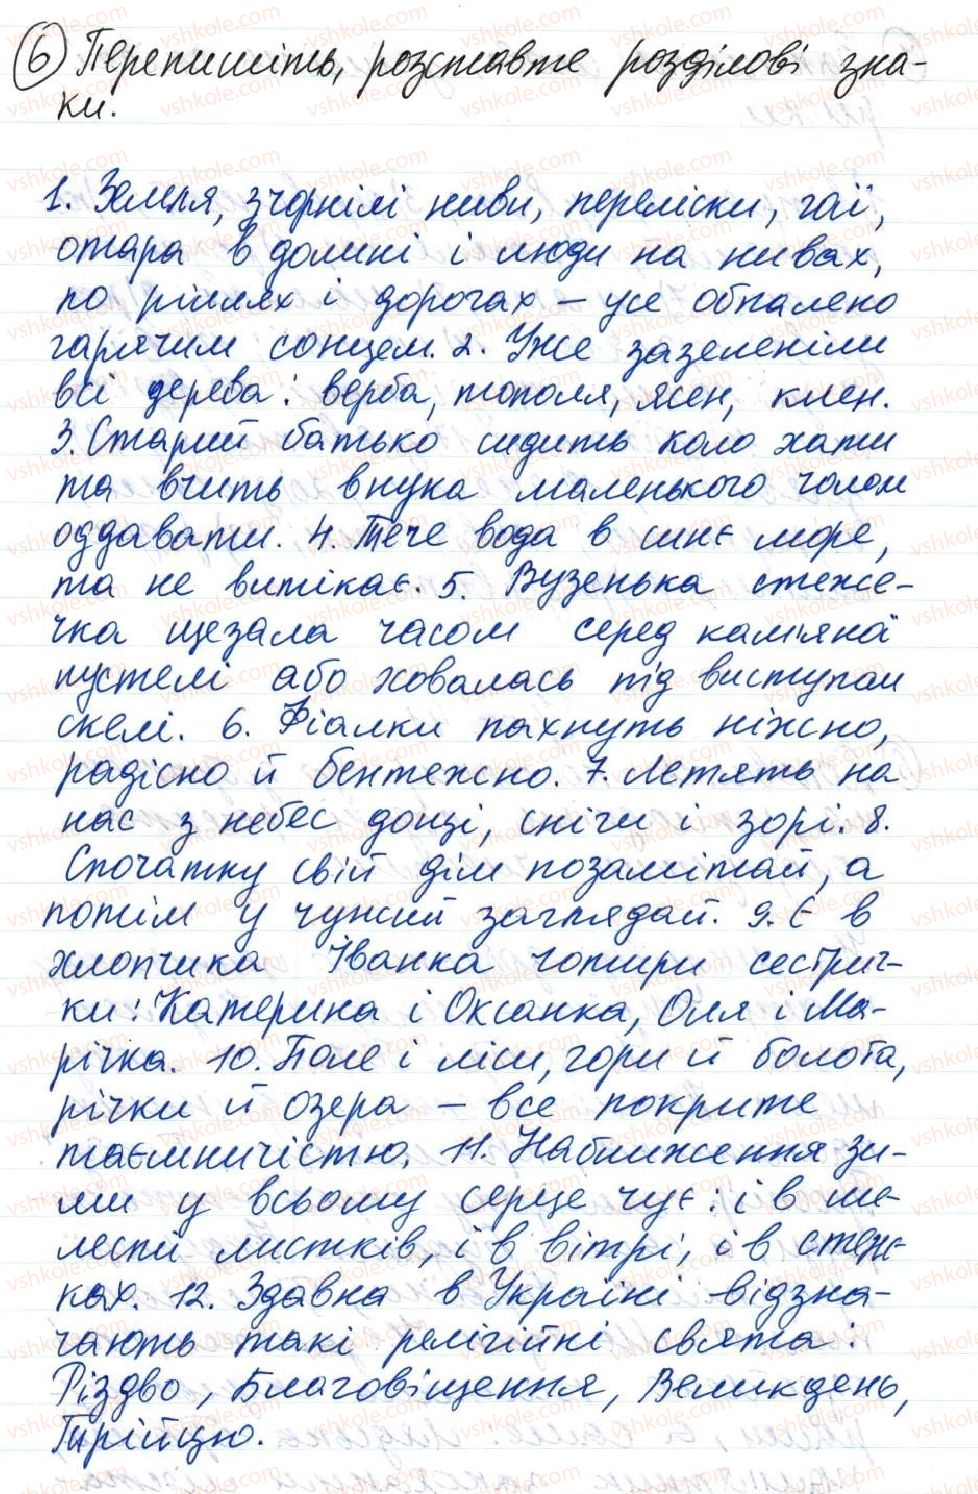 6 Перепишіть, розставте розділові зна-
ки.
1. Земля, зчорнілі ниви, переліски, гаї,
отара в долині і люди на нивах,
по ріллях і дорогах – усе обпалено
гарячим сонцем. 2. Уже зазеленіли
всі дерева: верба, тополя, ясен, клен.
3. Старий батько сидить коло хати
та вчить внука маленького чолом
оддавати. 4. Тече вода в синє море,
та не витікає. 5. Вузенька стеже-
чка щезала часом серед кам'яної
пустелі або ховалась під виступом
скелі. 6. Фіалки пахнуть ніжно,
радісно й бентежно. 7. Летять на
нас з небес дощі, сніги і зорі. 8.
Спочатку свій дім позамітай, а
потім у чужий заглядай. 9. Є в
хлопчика Іванка чотири сестрич-
ки: Катерина і Оксанка, Оля і Ма-
річка. 10. Поле і ліси, гори й болота,
річки й озера – все покрите
таємничістю. 11. Наближення зи-
ми у всьому серце чує: і в ше-
лесті листків, і в вітрі, і в стеж-
ках. 12. Здавна в Україні відзна-
чають такі релігійні свята:
Різдво, Благовіщення, Великдень,
Трійцю.